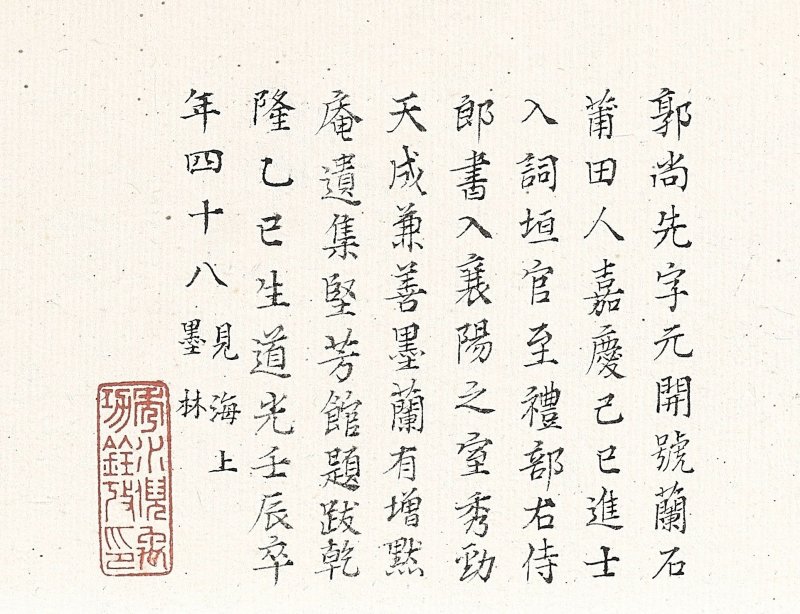 郭尚先字元開號蘭石
莆田人嘉慶己巳進士
入詞垣官至禮部右侍
郎書入襄陽之室秀勁
天成兼善墨蘭有增默
庵遺集堅芳館題跋乾
隆乙巳生道光壬辰卒
年四十八
見海上
墨林